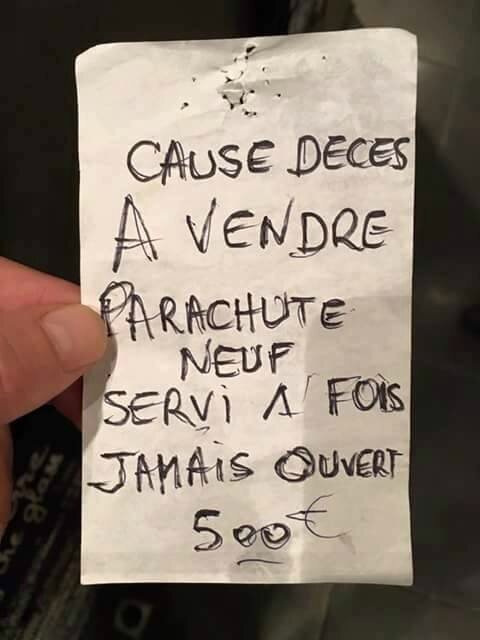 CAUSE DECES
A VENDRE
PARACHUTE
NEUF
SERVI 1 FOIS
JAMAIS OUVERT
500€